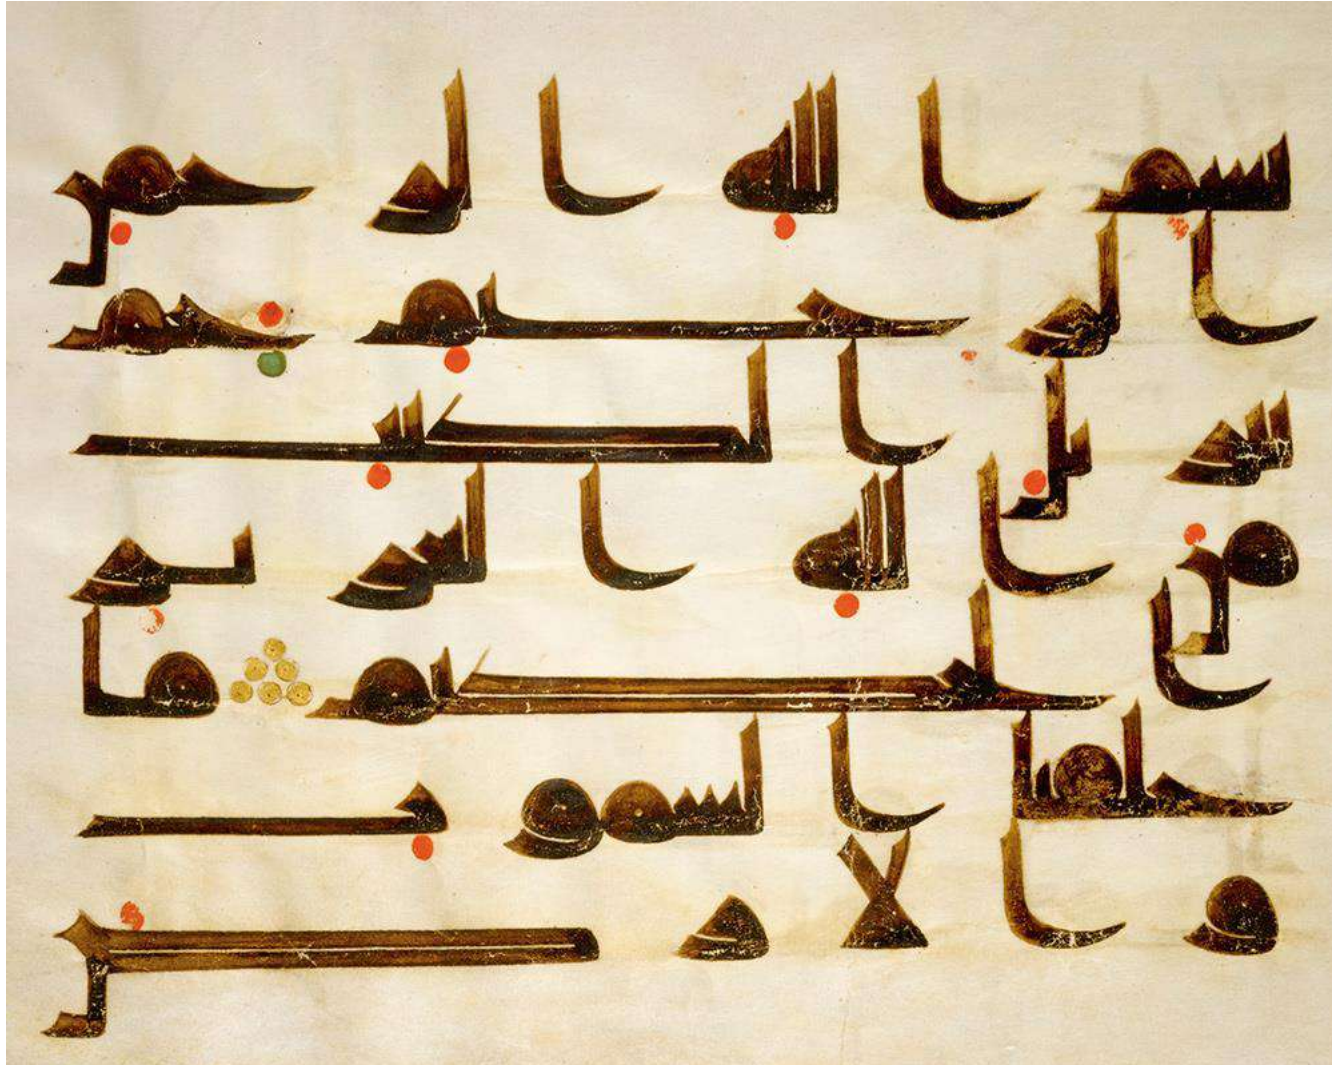 بسم الله الرحمن
الرحيم حم
تنزيل الكتب
من الله العزيز
الحكيم ما
خلقنا السموت
والارض